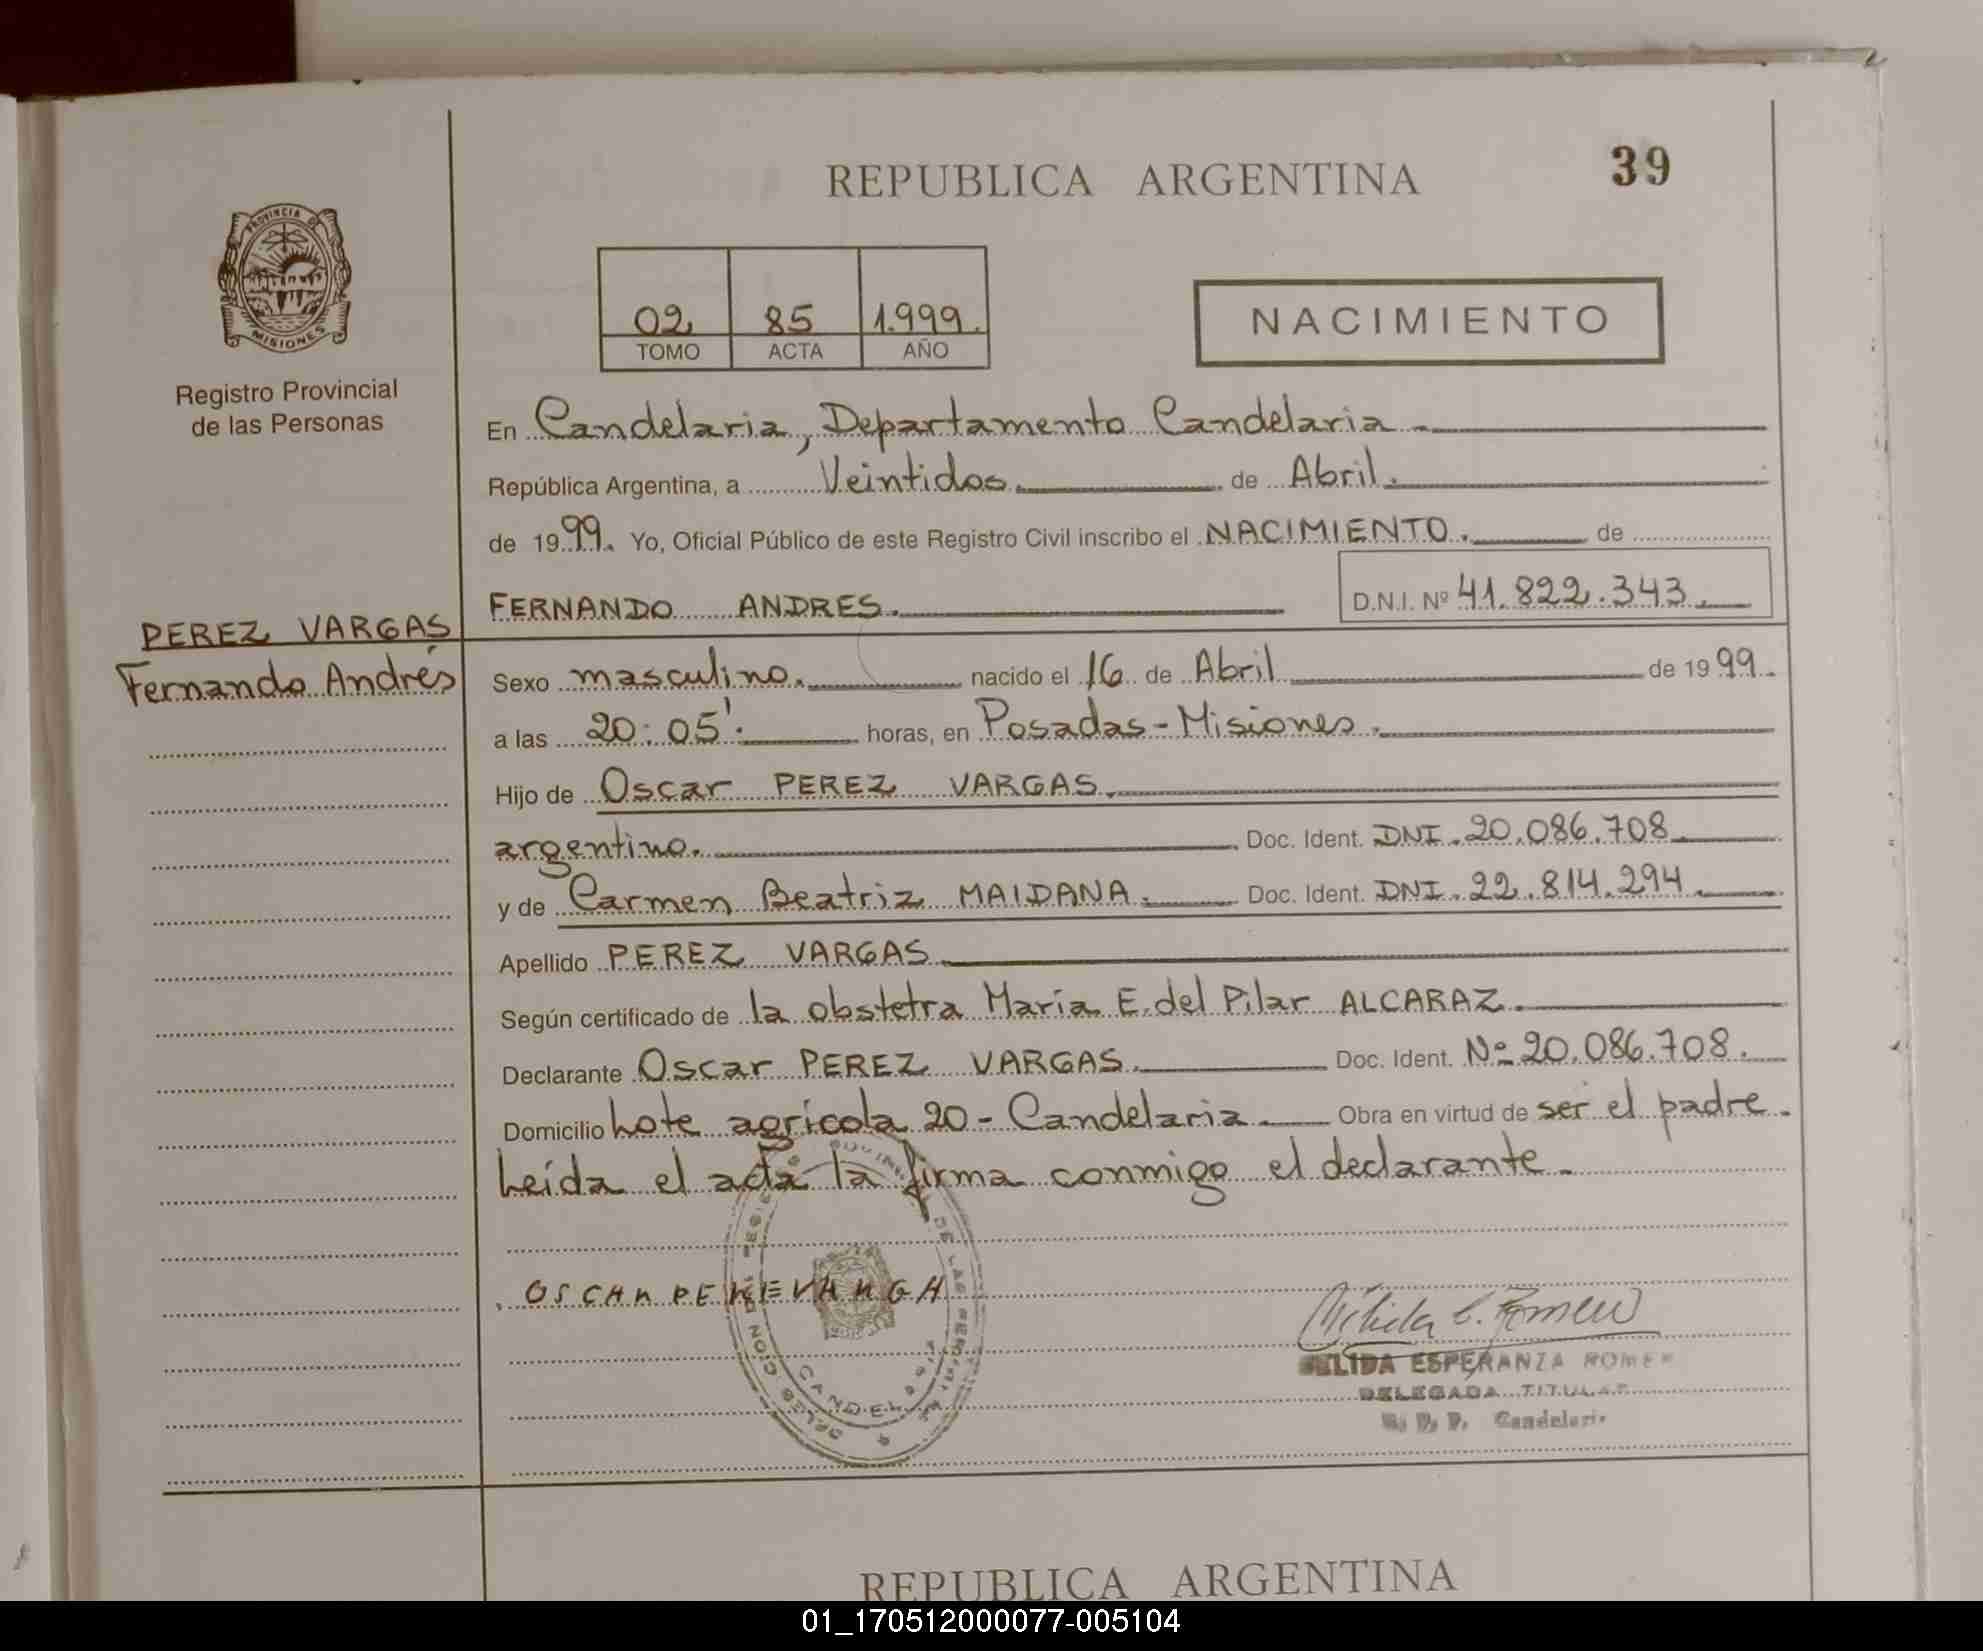 REPUBLICA ARGENTINA
39
PROVINCIA DE
MISIONES
Registro Provincial
de las Personas
02 85 1.999.
TOMO ACTA AÑO
NACIMIENTO
En Candelaria, Departamento Candelaria.
República Argentina, a Veintidos. de Abril.
de 1999. Yo, Oficial Público de este Registro Civil inscribo el NACIMIENTO. de
FERNANDO ANDRES. D.N.I. Nº 41.822.343.
PEREZ VARGAS
Fernando Andrés
Sexo masculino. nacido el 16 de Abril de 1999.
a las 20:05'. horas, en Posadas-Misiones.
Hijo de Oscar PEREZ VARGAS.
argentino. Doc. Ident. DNI. 20.086.708
y de Carmen Beatriz MAIDANA. Doc. Ident. DNI. 22.814.294.
Apellido PEREZ VARGAS
Según certificado de la obstetra María E. del Pilar ALCARAZ.
Declarante Oscar PEREZ VARGAS. Doc. Ident. Nº 20.086.708.
Domicilio Lote agrícola 20 - Candelaria. Obra en virtud de ser el padre.
Leída el acta la firma conmigo el declarante.
OSCAR PEREVARGA
DE LAS PERSONAS
CANDELARIA
ESPERANZA ROMER
DELEGADA TITULAR
Candelaria
REPUBLICA ARGENTINA
01_170512000077-005104